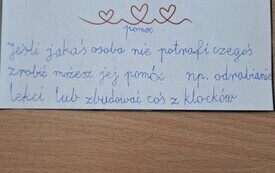 pomoc
Jeśli jakaś osoba nie potrafi czegoś
zrobić możesz jej pomóc np. odrabianie
lekci lub zbudować coś z klocków